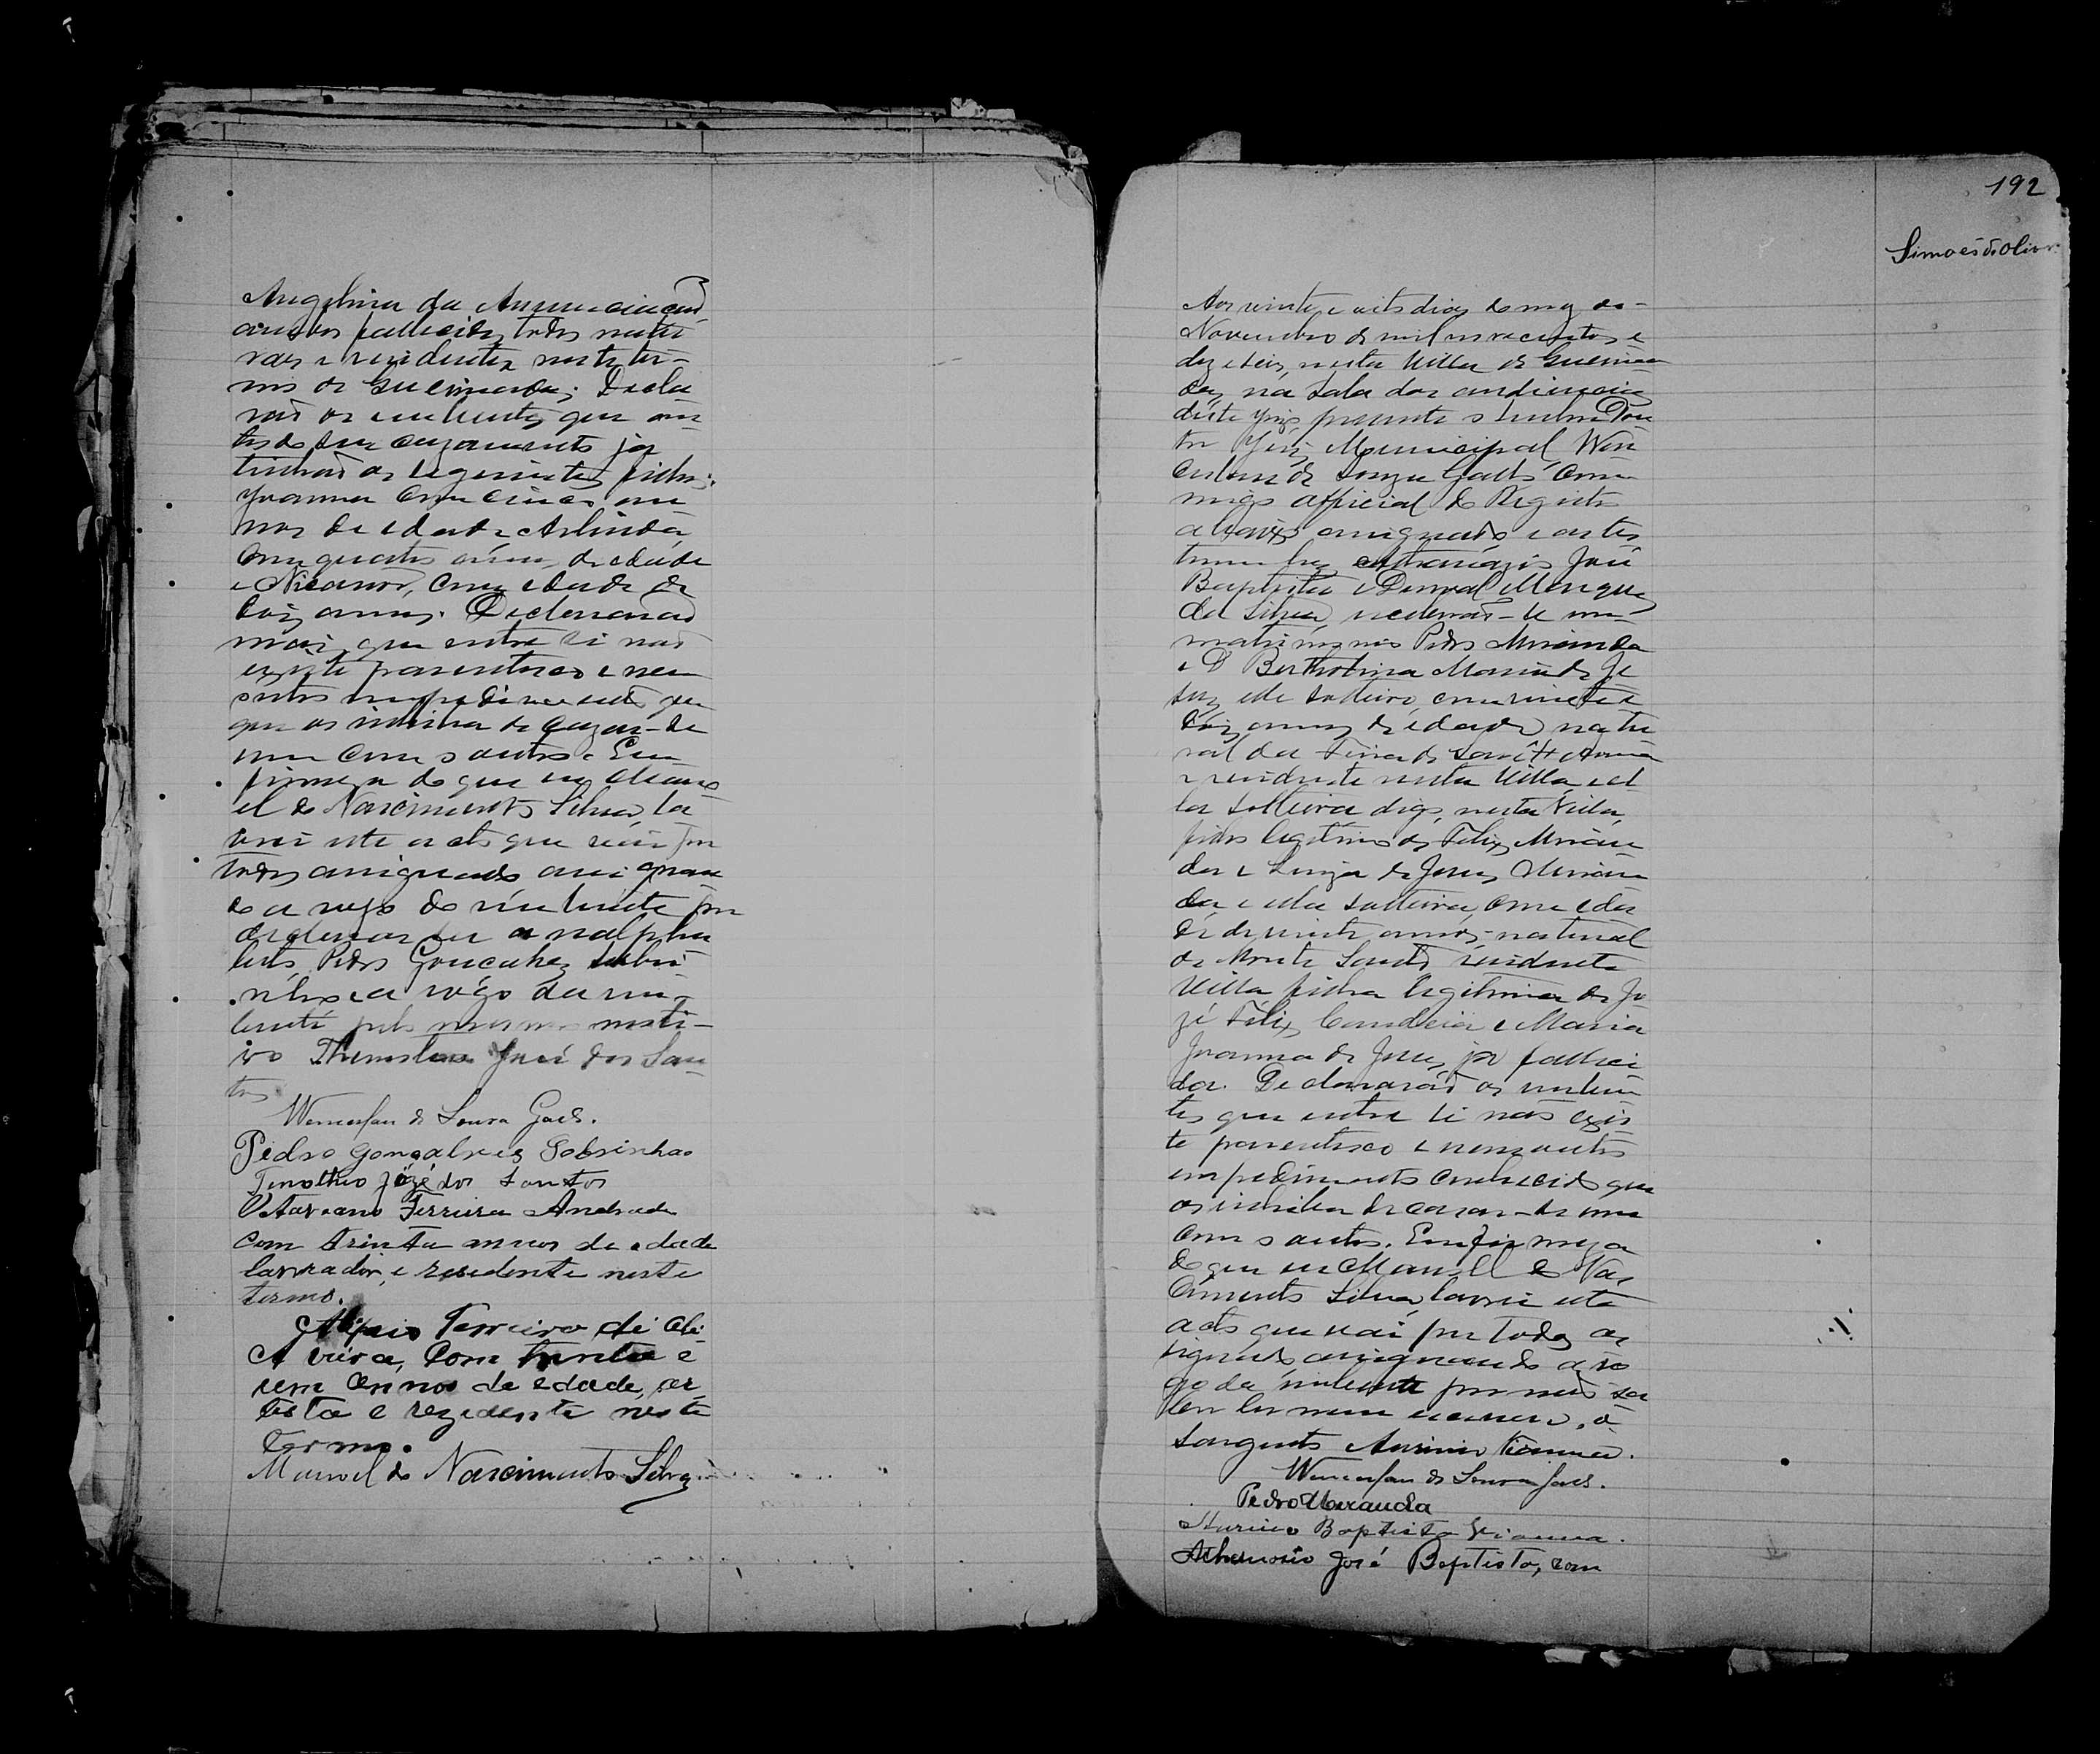 Angelina da Annunciação
ambos fallecidos, todos natu
raes e rezidentes neste ter-
mo de Queimadas; Decla
rão os nubentes que an
tes de seu cazamento já
tinhão os seguintes filhos:
Joanna com cinco an
nos de edade, Arlinda
com quatro annos de edade
e Nicanor, com edade de
dois annos. Declararão
mais que entre si não
existe parentesco e nem
outro impedimento
que os iniba de cazar-se
um com o outro. Em
firmeza do que eu Mano
el do Nascimento Silva, la
vrei este acto que vai por
todos assignado assignan
do a rogo do nubente por
declarar ser analpha
beto, Pedro Gonçalves Sobri-
nho e a rogo da nu-
bente pelo mesmo moti-
vo José dos San
tos
de Souza Gaes.
Pedro Gonçalves Sobrinho
Timotheo José dos Santos
Otaviano Ferreira Andrade
com trinta annos de edade
lavrador, e residente neste
termo.
Ferreira de Oli
veira, Com trinta e
um annos de edade, ar
tista e rezidente neste
Termo.
Manoel do Nascimento Silva
192
Simões de Oliv
Aos vinte e oito dias do mez de
Novembro de mil novecentos e
dezeseis, nesta Villa de Queima
das, na sala das audiencias
deste Juizo presente o senhor Dou
tor Juiz Municipal, Wen
de Souza Commi
migo official do Registro
abaixo assignado e as tes
temunhas Athanazio José
Baptista e Durval Marques
da Silva, receberão-se em
matrimonio Pedro Miranda
e D. Bertholina Maria de Je
sus, elle solteiro, com vinte e
dois annos de edade, natu
ral da Feira de Sant'Anna
e residente nesta Villa, e el
la solteira digo, nesta Villa,
filho legitimo de Felix Miran
da e Luiza de Jesus Miran
da, e ella solteira, com eda
de de vinte annos, natural
de Monte Santo residente
Villa filha legitima de Jo
zé Felix Candeia e Maria
Joanna de Jesus, já falleci
dos. Declararão os nuben
tes que entre si não exis
te parentesco e nem outro
impedimento conhecido que
os iniba de casar-se um
com o outro. Em firmeza
do que eu Manoel do Nas
cimento Silva, lavrei este
acto que vai por todos as
signado, assignando a ro
go da nubente por não sa
ber ler nem escrever, o
Sargento Aurino Vianna.
de Souza Gaes.
Pedro Miranda
Aurino Baptista Vianna.
Athanasio José Baptista, com